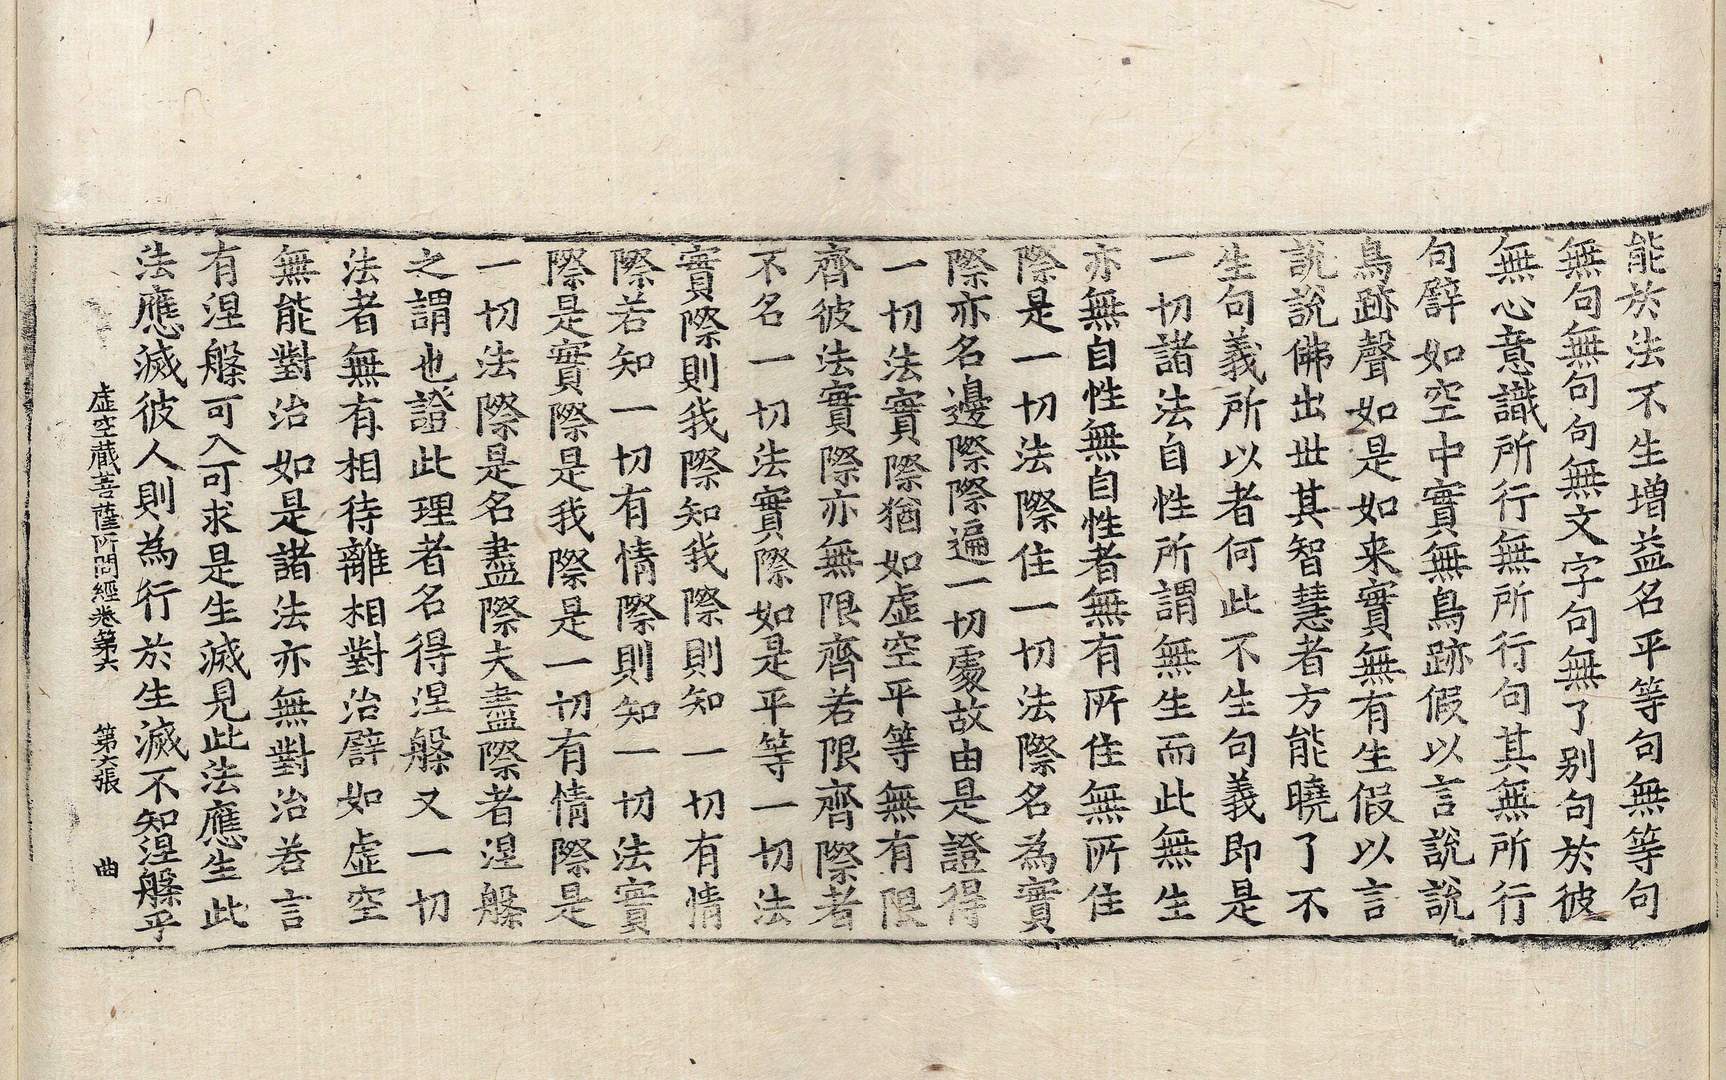 能於法不生增益名平等句無等句
無句無句句無文字句無了别句於彼
無心意識所行無所行句其無所行
句譬如空中實無鳥跡假以言說說
鳥跡聲如是如来實無有生假以言
說說佛出世其智慧者方能曉了不
生句義所以者何此不生句義即是
一切諸法自性所謂無生而此無生
亦無自性無自性者無有所住無所住
際是一切法際住一切法際名為實
際亦名邊際際遍一切處故由是證得
一切法實際猶如虛空平等無有限
齊彼法實際亦無限齊若限齊際者
不名一切法實際如是平等一切法
實際則我際知我際則知一切有情
際若知一切有情際則知一切法實
際是實際是我際是一切有情際是
一切法際是名盡際夫盡際者涅槃
之謂也證此理者名得涅槃又一切
法者無有相待離相對治譬如虛空
無能對治如是諸法亦無對治若言
有涅槃可入可求是生滅見此法應生此
法應滅彼人則為行於生滅不知涅槃平
虛空藏菩薩所問經卷第六 第六張 曲